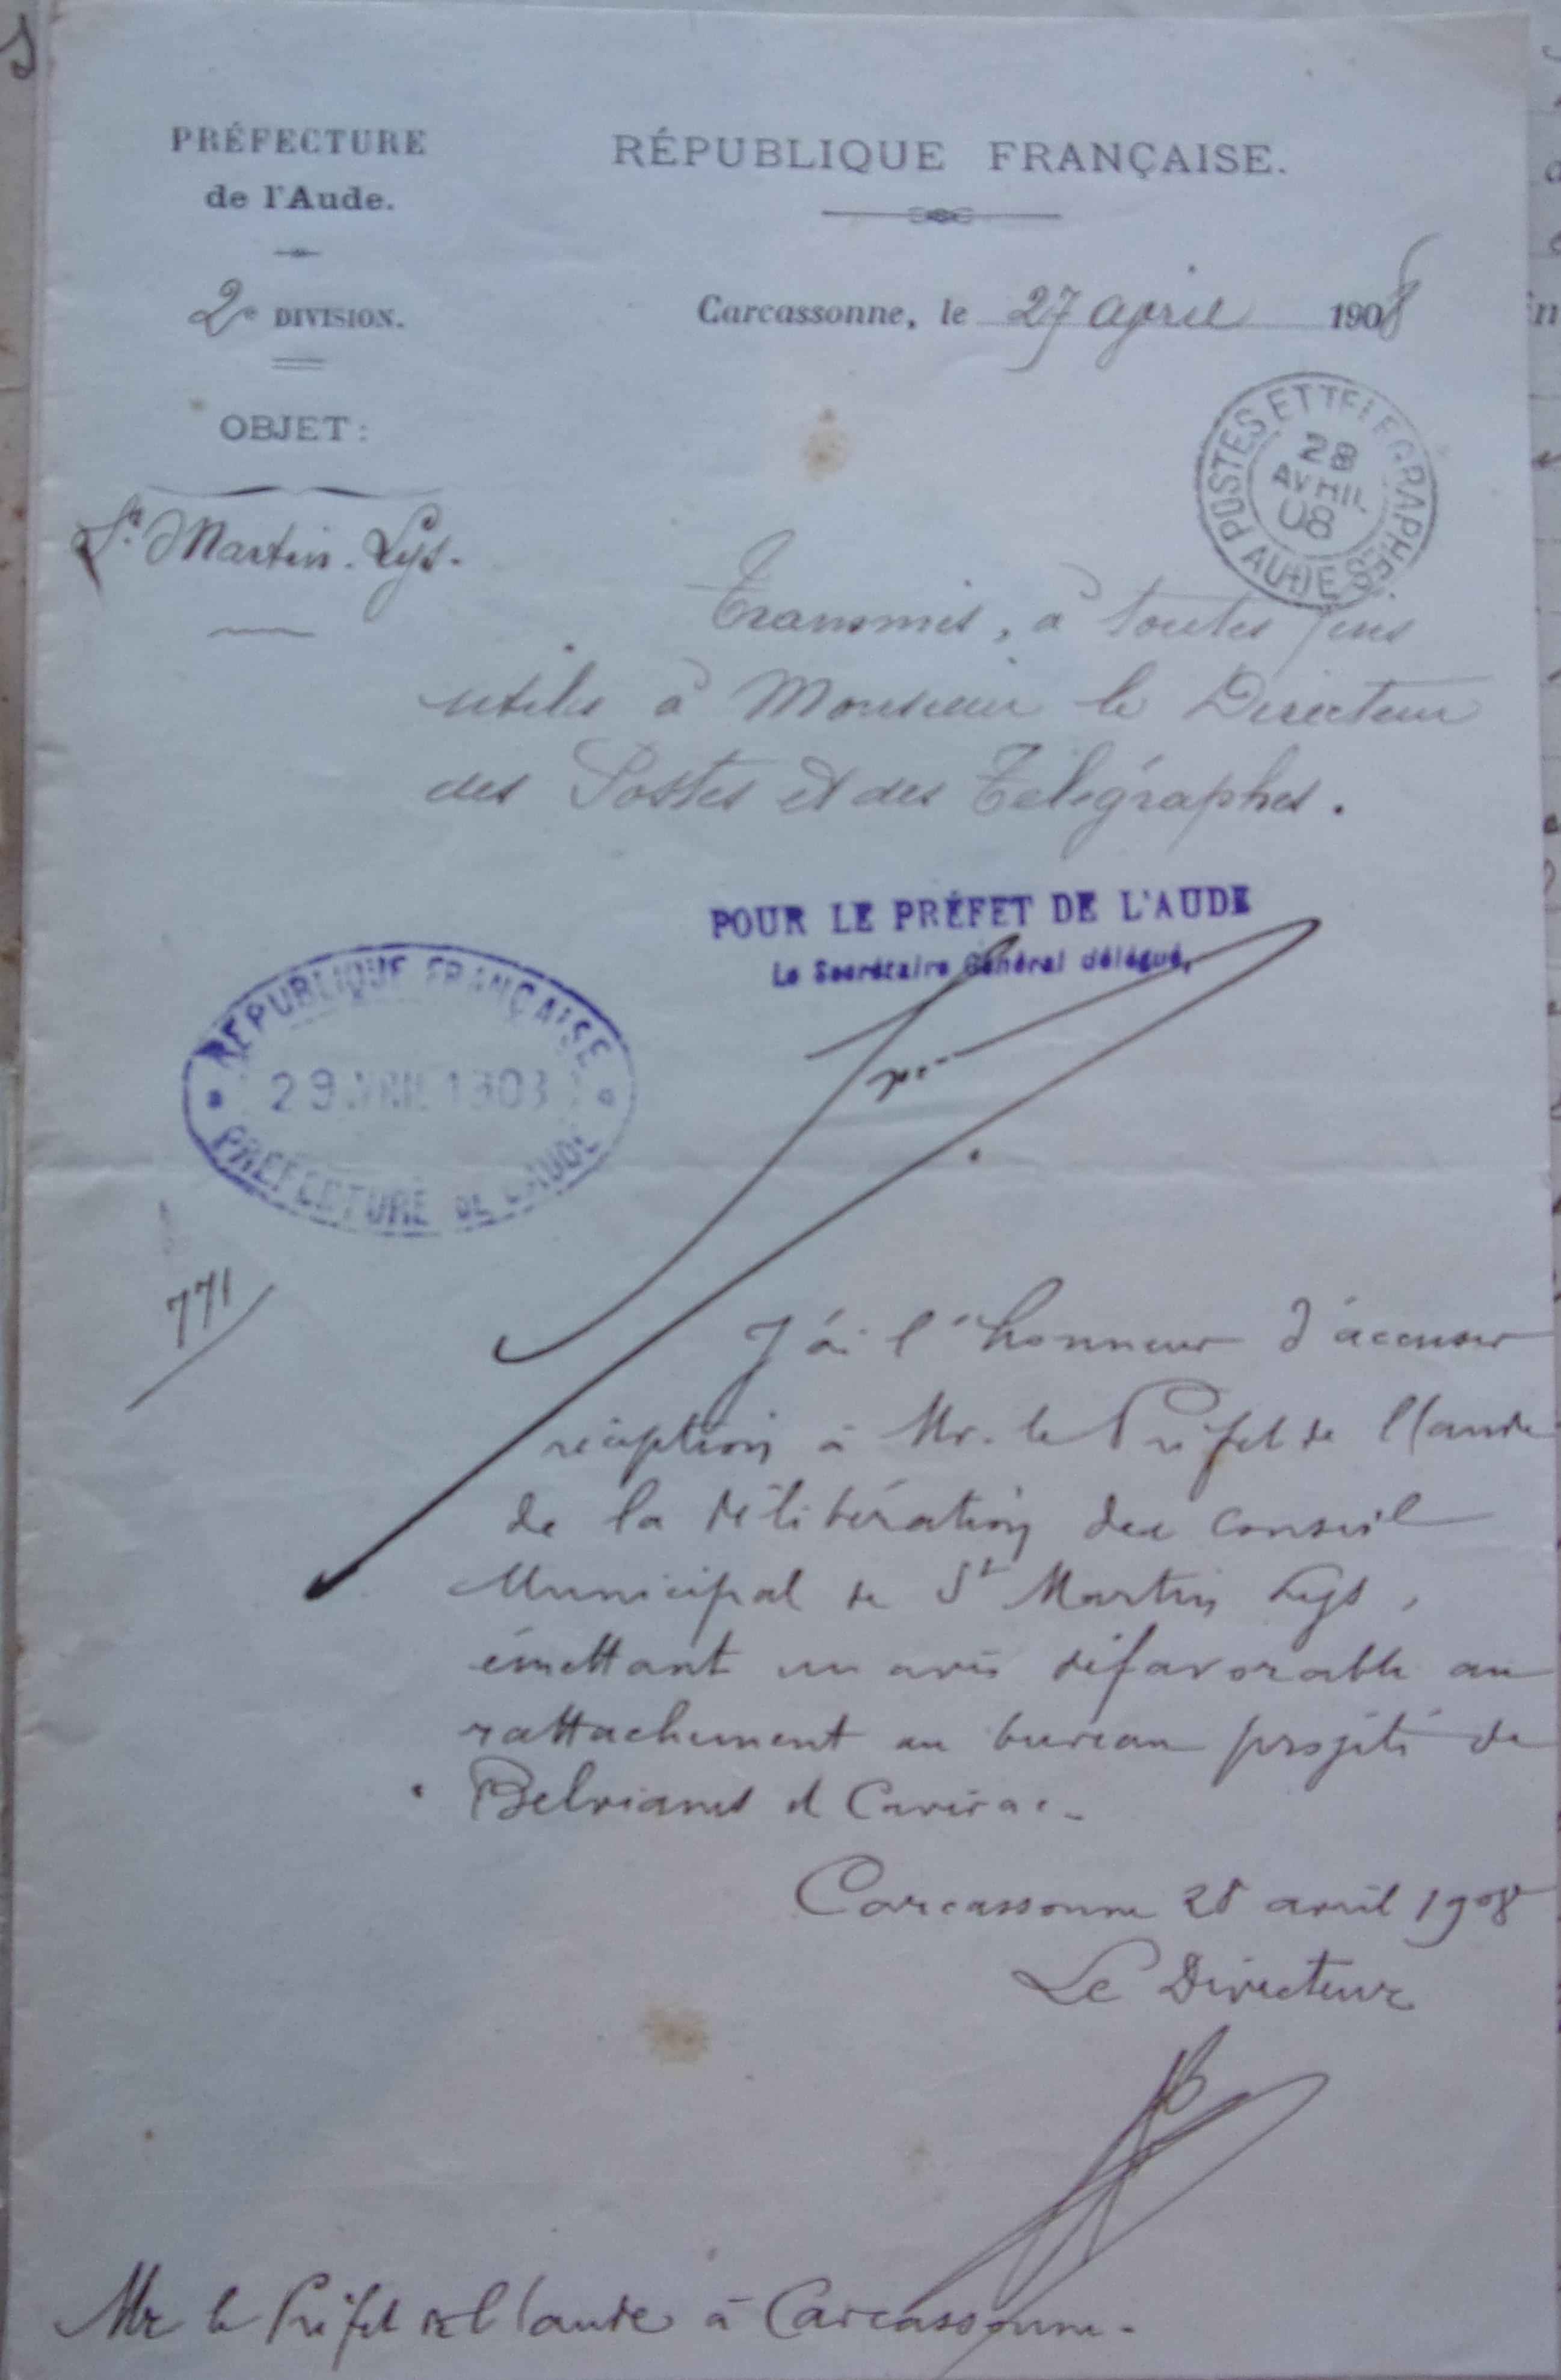 PRÉFECTURE
de l'Aude.
2e DIVISION.
OBJET :
St Martin-Lys.
RÉPUBLIQUE FRANÇAISE.
Carcassonne, le 27 avril 1908
POSTES ET TELEGRAPHES
28
AVRIL
08
AUDE
Transmis, à toutes fins
utiles à Monsieur le Directeur
des Postes et des Télégraphes.
POUR LE PRÉFET DE L'AUDE
Le Secrétaire Général délégué,
RÉPUBLIQUE FRANÇAISE
29 AVRIL 1908
PRÉFECTURE DE L'AUDE
771
J'ai l'honneur d'accuser
réception à Mr. le Préfet de l'Aude
de la délibération du conseil
Municipal de St Martin Lys,
émettant un avis défavorable au
rattachement au bureau projeté de
Belvianes et Cavirac.
Carcassonne 28 avril 1908
Le Directeur
Mr le Préfet de l'Aude à Carcassonne.